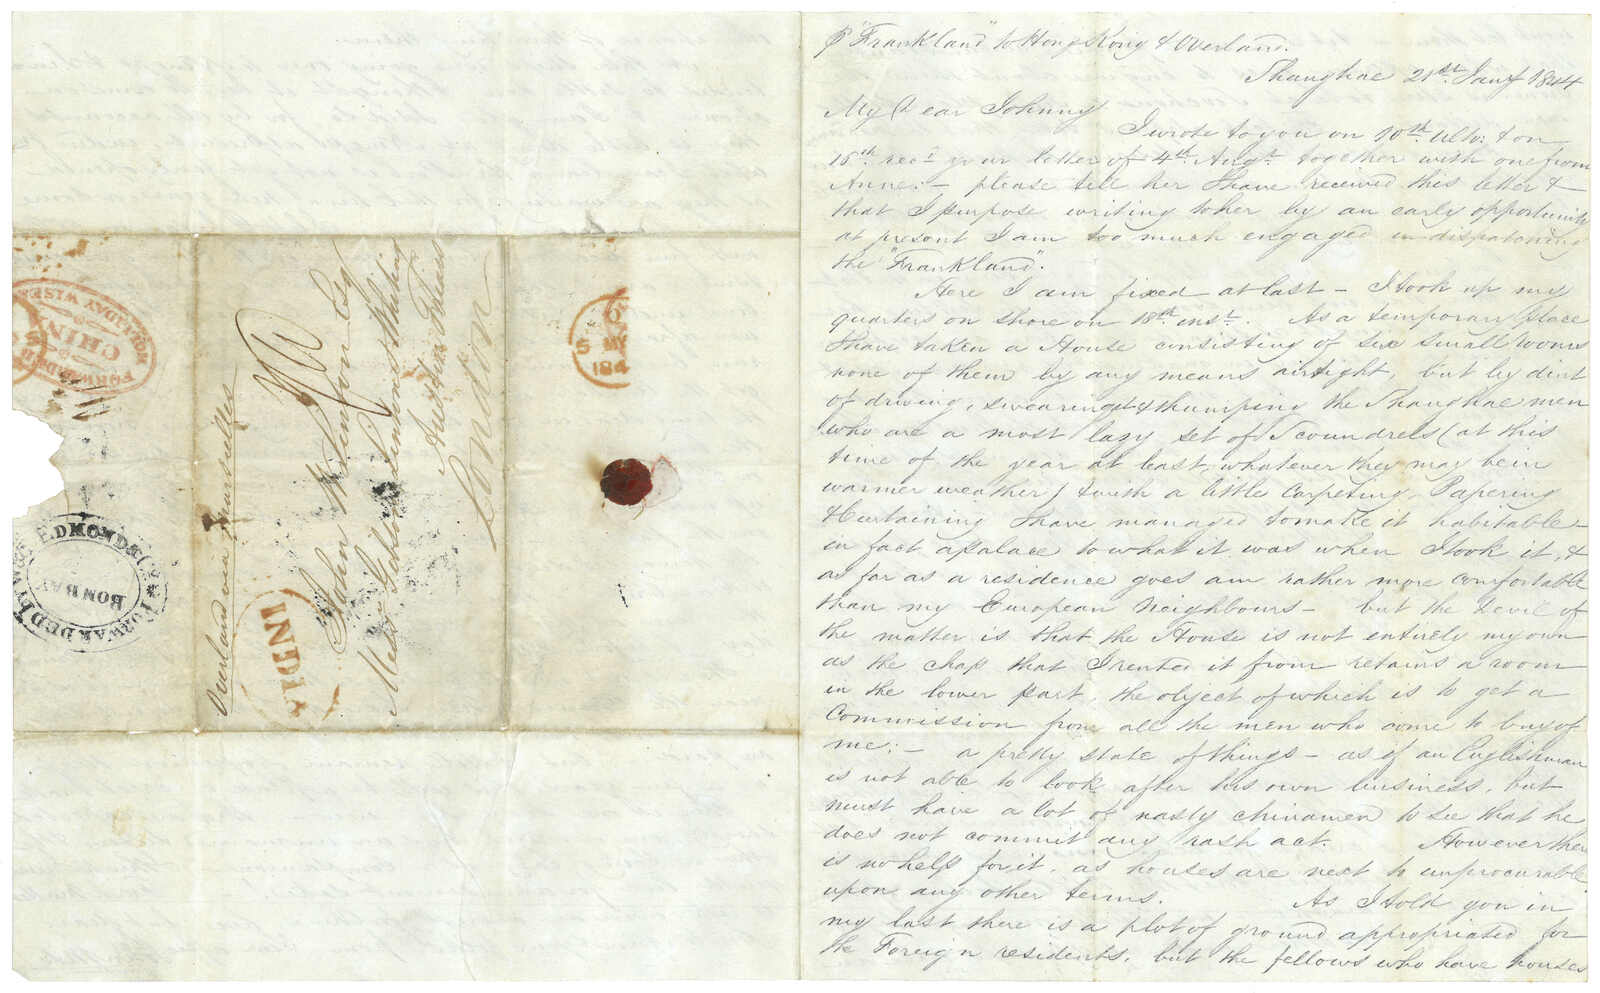 FORWARDED
CHINA
FROM
HALLIDAY WISE &
FORWARDED BY
EDMOND & Co
BOMBAY
Overland via Marseilles
John
Esq
Mess
Austin Friars
London
INDIA
5 MY 5
184
℗ "Frankland" to Hong Kong & Overland.
Shanghae 21st Jany 1844
My Dear Johnny
I wrote to you on 10th Ulto: & on
15th recd your letter of 4th Augt together with one from
Anne:— please tell her I have received this letter &
that I purpose writing to her by an early opportunity
at present I am too much engaged in dispatching
the "Frankland".
Here I am fixed at last — I took up my
quarters on shore on 18th inst. As a temporary place
I have taken a House consisting of six small rooms
none of them by any means airtight, but by dint
of driving, swearing at & thumping the Shanghae men
who are a most lazy set of Scoundrels (at this
time of the year at least, whatever they may be in
warmer weather) & with a little Carpeting, Papering
& Curtaining I have managed to make it habitable —
in fact a palace to what it was when I took it, &
as far as a residence goes am rather more comfortable
than my European Neighbours — but the Devil of
the matter is that the House is not entirely my own
as the chap that I rented it from retains a room
in the lower part, the object of which is to get a
Commission from all the men who come to buy of
me:— a pretty state of things — as if an Englishman
is not able to look after his own business, but
must have a lot of nasty chinamen to see that he
does not commit any rash act. However there
is no help for it, as houses are next to unprocurable
upon any other terms. As I told you in
my last there is a plot of ground appropriated for
the Foreign residents, but the fellows who have houses